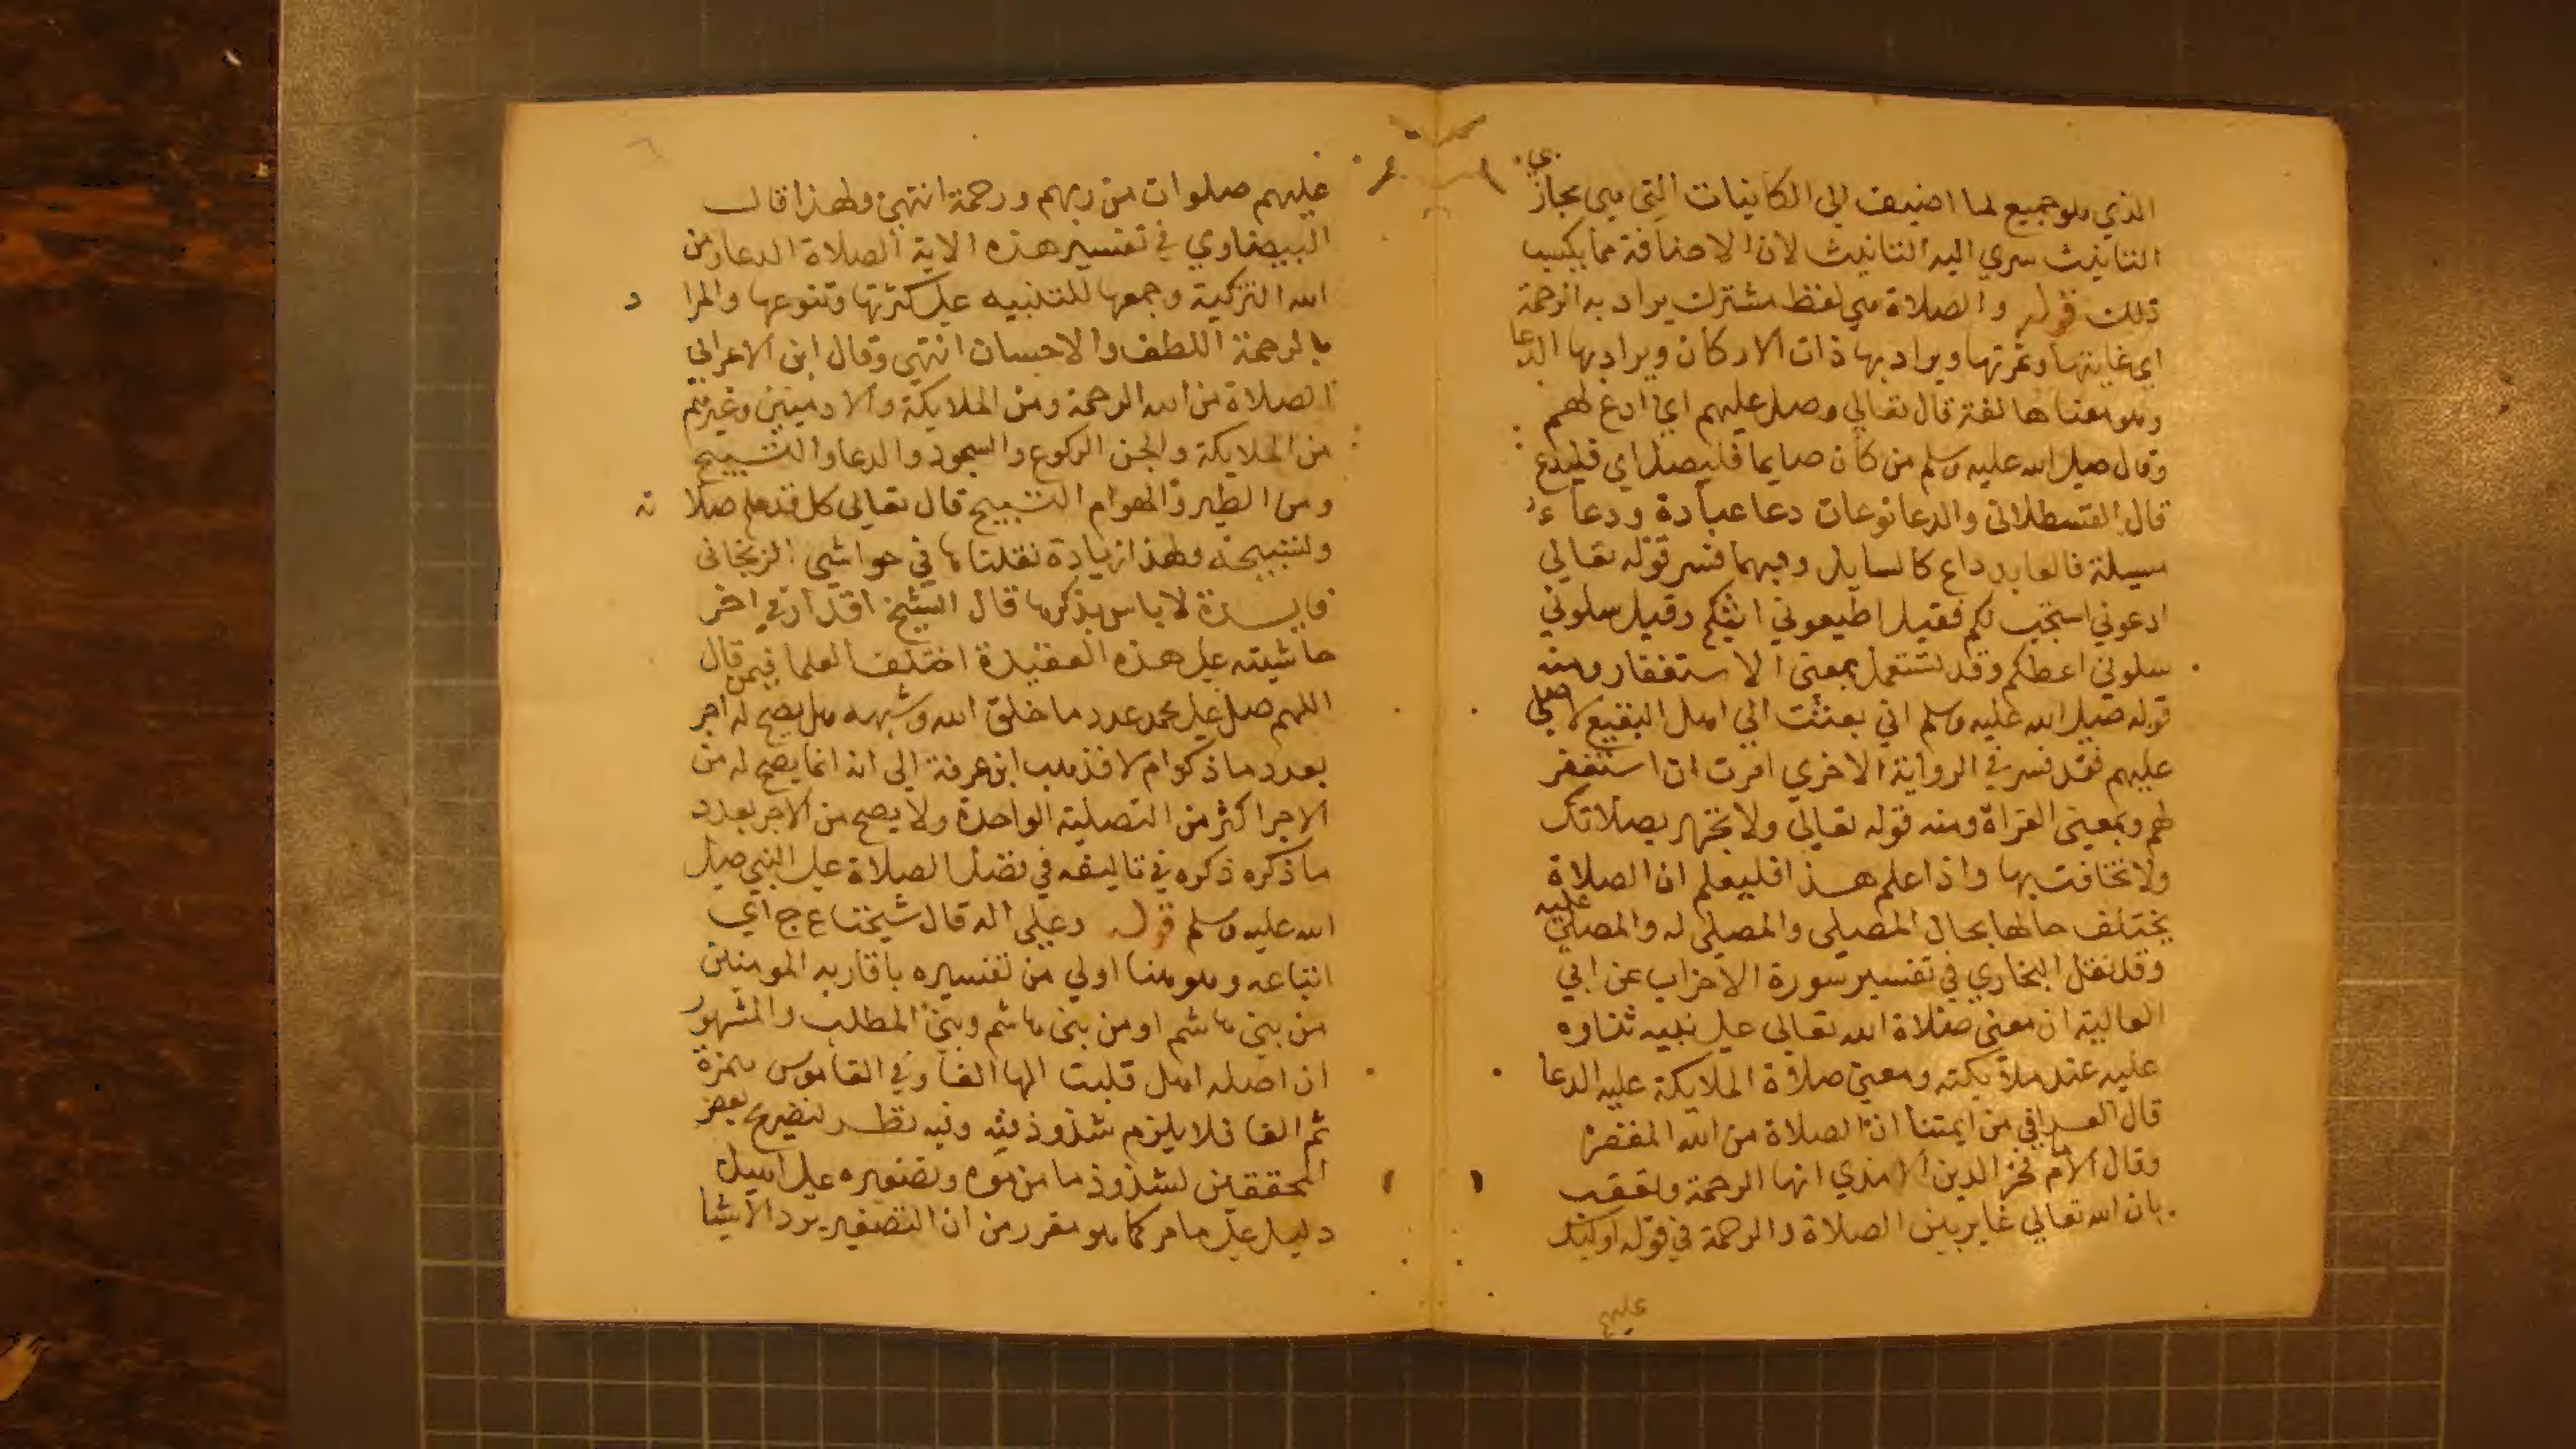 الذي هو جميع لما اضيف الي الكاينات التي هي مجازي
التانيث سري اليه التانيث لان الاضافة مما يكسب
ذلك قوله والصلاة هي لفظ مشترك يراد به الرحمة
اي غايتها وثمرتها ويراد بها ذات الاركان ويراد بها الدعا
وهو معناها لغة قال تعالي وصل عليهم اي ادع لهم
وقال صلي الله عليه وسلم من كان صايما فليصل اي فليدع
قال القسطلاني والدعا نوعان دعا عبادة ودعاء
مسيلة فالعابد داع كالسايل وبهما فسر قوله تعالي
ادعوني استجب لكم فقيل اطيعوني اثبكم وقيل سلوني
سلوني اعطكم وقد تستعمل بمعني الاستغفار ومنه
قوله صلي الله عليه وسلم اني بعثت الي اهل البقيع لاصلي
عليهم فقد فسر في الرواية الاخري امرت ان استغفر
لهم وبمعني القراة ومنه قوله تعالي ولا تجهر بصلاتك
ولا تخافت بها واذا علم هذا فليعلم ان الصلاة
يختلف حالها بحال المصلي والمصلي له والمصلي عليه
وقد نقل البخاري في تفسير سورة الاحزاب عن ابي
العالية ان معني صلاة الله تعالي علي نبيه ثناوه
عليه عند ملايكته ومعني صلاة الملايكة عليه الدعا
قال القرافي من ايمتنا ان الصلاة من الله المغفرة
وقال الامام فخر الدين الامدي انها الرحمة وتعقب
بان الله تعالي غاير بين الصلاة والرحمة في قوله اوليك
عليهم
عليهم صلوات من ربهم ورحمة انتهي ولهذا قال
البيضاوي في تفسير هذه الاية الصلاة الدعا ومن
الله التزكية وجمعها للتنبيه علي كثرتها وتنوعها والمراد
بالرحمة اللطف والاحسان انتهي وقال ابن الاعرابي
الصلاة من الله الرحمة ومن الملايكة والادميين وغيرهم
من الملايكة والجن الركوع والسجود والدعا والتسبيح
ومن الطير والهوام التسبيح قال تعالي كل قد علم صلاته
وتسبيحه وهذا زيادة نقلناها في حواشي الزنجاني
فايدة لا باس بذكرها قال الشيخ اقدار في اخر
حاشيته علي هذه العقيدة اختلف العلما فيمن قال
اللهم صل علي محمد عدد ما خلق الله وشبهه هل يصح له اجر
بعدد ما ذكر ام لا فذهب ابن عرفة الي انه انما يصح له من
الاجر اكثر من التصلية الواحدة ولا يصح من الاجر بعدد
ما ذكره ذكره في تاليفه في فضل الصلاة علي النبي صلي
الله عليه وسلم قوله وعلي اله قال شيخنا ع ج اي
اتباعه وهو هنا اولي من تفسيره باقاربه المومنين
من بني هاشم او من بني هاشم وبني المطلب والمشهور
ان اصله اهل قلبت الها الفا وفي القاموس همزة
ثم الفا فلا يلزم شذوذ فيه وفيه نظر لتصريح بعض
المحققين لشذوذ ما من موه وتصغيره علي اهيل
دليل علي ما مر كما هو مقرر من ان التصغير يرد الاشيا